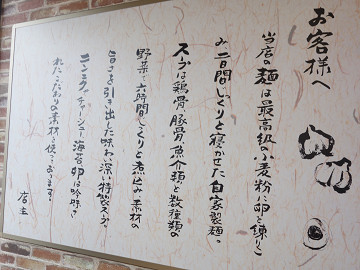 お客様へ
当店の麺は最高級小麦粉に卵を練りこ
み、二日間じっくりと寝かせた自家製麺。
スープは鶏骨、豚骨、魚介類と数種類の
野菜で六時間じっくりと煮込み、素材の
旨さを引き出した味わい深い特製スープ
ニンニク、チャーシュー、海苔、卵は吟味さ
れたこだわりの素材を使っております。
店主